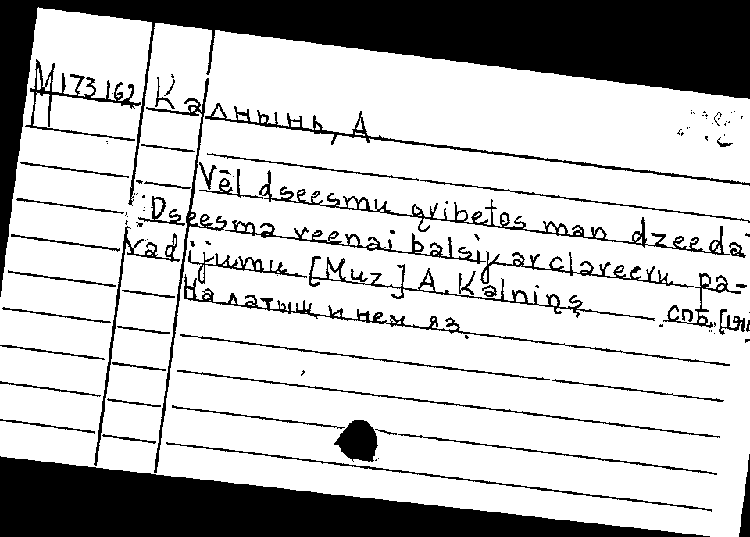 М 173 162 Калнынь, А.
Vēl dseesmu gribetos man dzeedat
Dseesma veenai balsij ar claveeru pa-
vadijumu [Muz] A. Kalniņş СПБ,
На латыш и нем. яз.